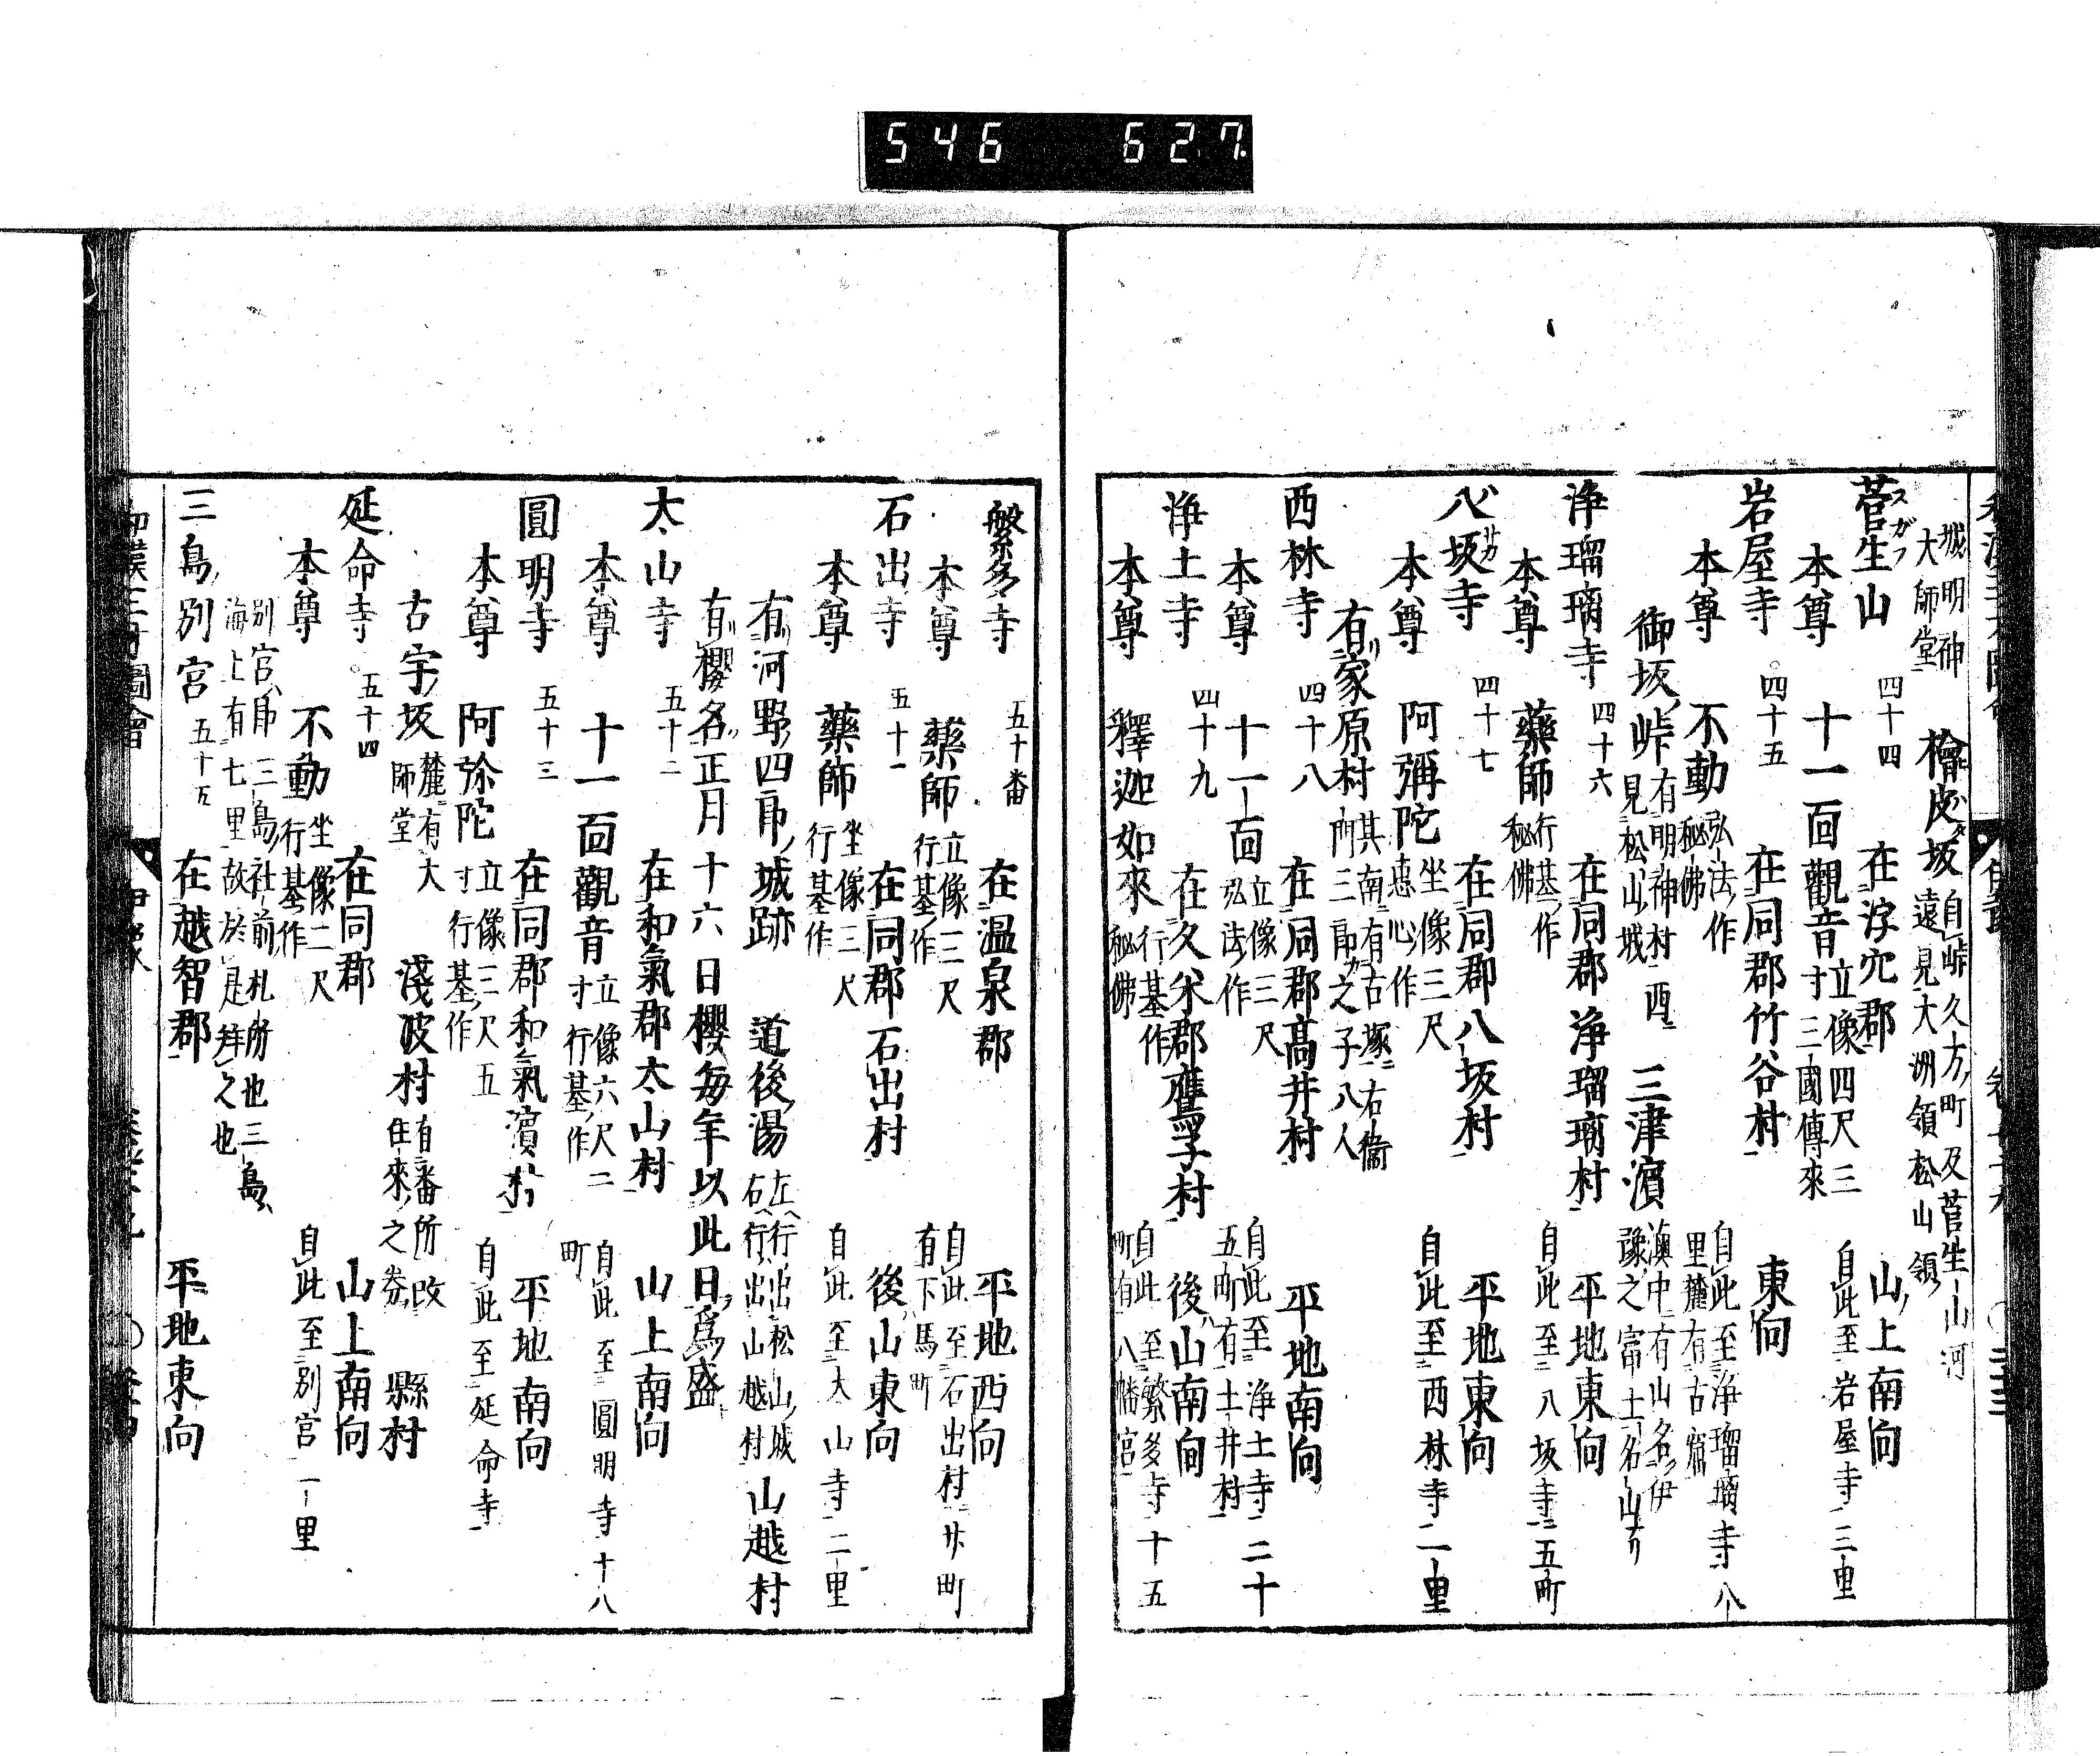 546 627
城明神
大師堂
檜皮坂
自峠久方町及菅生山河
遠見大洲領松山領
菅生山 四十四 在浮穴郡 山上南向
スガフ
本尊 十一面觀音 立像四尺三
寸三國傳來
自此至岩屋寺三里
岩屋寺 四十五 在同郡竹谷村 東向
本尊 不動 弘法作
秘佛
自此至淨瑠璃寺八
里麓有古窟
御坂峠 有明神村西
見松山城
三津濱 澳中有山名伊
豫之富士名山有
淨瑠璃寺 四十六 在同郡淨瑠璃村 平地東向
本尊 藥師 行基作
秘佛
自此至八坂寺五町
八坂寺 四十七 在同郡八坂村 平地東向
本尊 阿彌陀 坐像三尺
惠心作
自此至西林寺一里
有家原村 其南有古塚右衞
門三郎之子八人
西林寺 四十八 在同郡高井村 平地南向
本尊 十一面 立像三尺
弘法作
自此至淨土寺二十
五町有土井村
淨土寺 四十九 在久米郡鷹子村 後山南向
本尊 釋迦如來 行基作
秘佛
自此至繁多寺十五
町有八幡宮
繁多寺 五十番 在温泉郡 平地西向
本尊 藥師 立像三尺
行基作
自此至石出村廿町
有下馬町
石出寺 五十一 在同郡石出村 後山東向
本尊 藥師 坐像三尺
行基作
自此至大山寺二里
有河野四郎城跡 道後湯 左行出松山城
右行出山越村 山越村
有櫻名正月十六日櫻毎年以此日爲盛
太山寺 五十二 在和氣郡太山村 山上南向
本尊 十一面觀音 立像六尺二
寸行基作
自此至圓明寺十八
町
圓明寺 五十三 在同郡和氣濱村 平地南向
本尊 阿弥陀 立像三尺五
寸行基作
自此至延命寺
古宇坂 麓有大
師堂
淺波村 有番所改
往來之劵
縣村
延命寺 五十四 在同郡 山上南向
本尊 不動 坐像二尺
行基作
自此至別宮一里
別宮即三島社前札所也三島
海上有七里故於是拜之也
三島別宮 五十五 在越智郡 平地東向